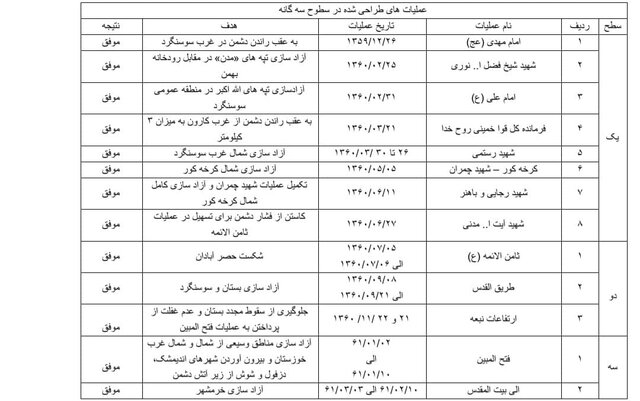 عملیات های طراحی شده در سطوح سه گانه
سطح ردیف نام عملیات تاریخ عملیات هدف نتیجه
یک
۱ امام مهدی (عج) ۱۳۵۹/۱۲/۲۶ به عقب راندن دشمن در غرب سوسنگرد موفق
۲ شهید شیخ فضل ا.. نوری ۱۳۶۰/۰۲/۲۵ آزاد سازی تپه های «مدن» در مقابل رودخانه
بهمن موفق
۳ امام علی (ع) ۱۳۶۰/۰۲/۳۱ آزادسازی تپه های الله اکبر در منطقه عمومی
سوسنگرد موفق
۴ فرمانده کل قوا خمینی روح خدا ۱۳۶۰/۰۳/۲۱ به عقب راندن دشمن از غرب کارون به میزان ۳
کیلومتر موفق
۵ شهید رستمی ۲۶ تا ۳۰ /۱۳۶۰/۰۳ آزاد سازی شمال غرب سوسنگرد موفق
۶ کرخه کور – شهید چمران ۱۳۶۰/۰۵/۰۵ آزاد سازی شمال کرخه کور موفق
۷ شهید رجایی و باهنر ۱۳۶۰/۰۶/۱۱ تکمیل عملیات شهید چمران و آزاد سازی کامل
شمال کرخه کور موفق
۸ شهید آیت ا.. مدنی ۱۳۶۰/۰۶/۲۷ کاستن از فشار دشمن برای تسهیل در عملیات
ثامن الائمه موفق
دو
۱ ثامن الائمه (ع) ۱۳۶۰/۰۷/۰۵
الی ۱۳۶۰/۰۷/۰۶ شکست حصر آبادان موفق
۲ طریق القدس ۱۳۶۰/۰۹/۰۸
الی ۱۳۶۰/۰۹/۲۱ آزاد سازی بستان و سوسنگرد موفق
۳ ارتفاعات نبعه ۲۱ و ۲۲ /۱۱/ ۱۳۶۰ جلوگیری از سقوط مجدد بستان و عدم غفلت از
پرداختن به عملیات فتح المبین موفق
سه
۱ فتح المبین ۶۱/۰۱/۰۲
الی
۶۱/۰۱/۱۰ آزاد سازی مناطق وسیعی از شمال و شمال غرب
خوزستان و بیرون آوردن شهرهای اندیمشک،
دزفول و شوش از زیر آتش دشمن موفق
۲ الی بیت المقدس ۶۱/۰۲/۱۰ الی ۶۱/۰۳/۰۳ آزاد سازی خرمشهر موفق